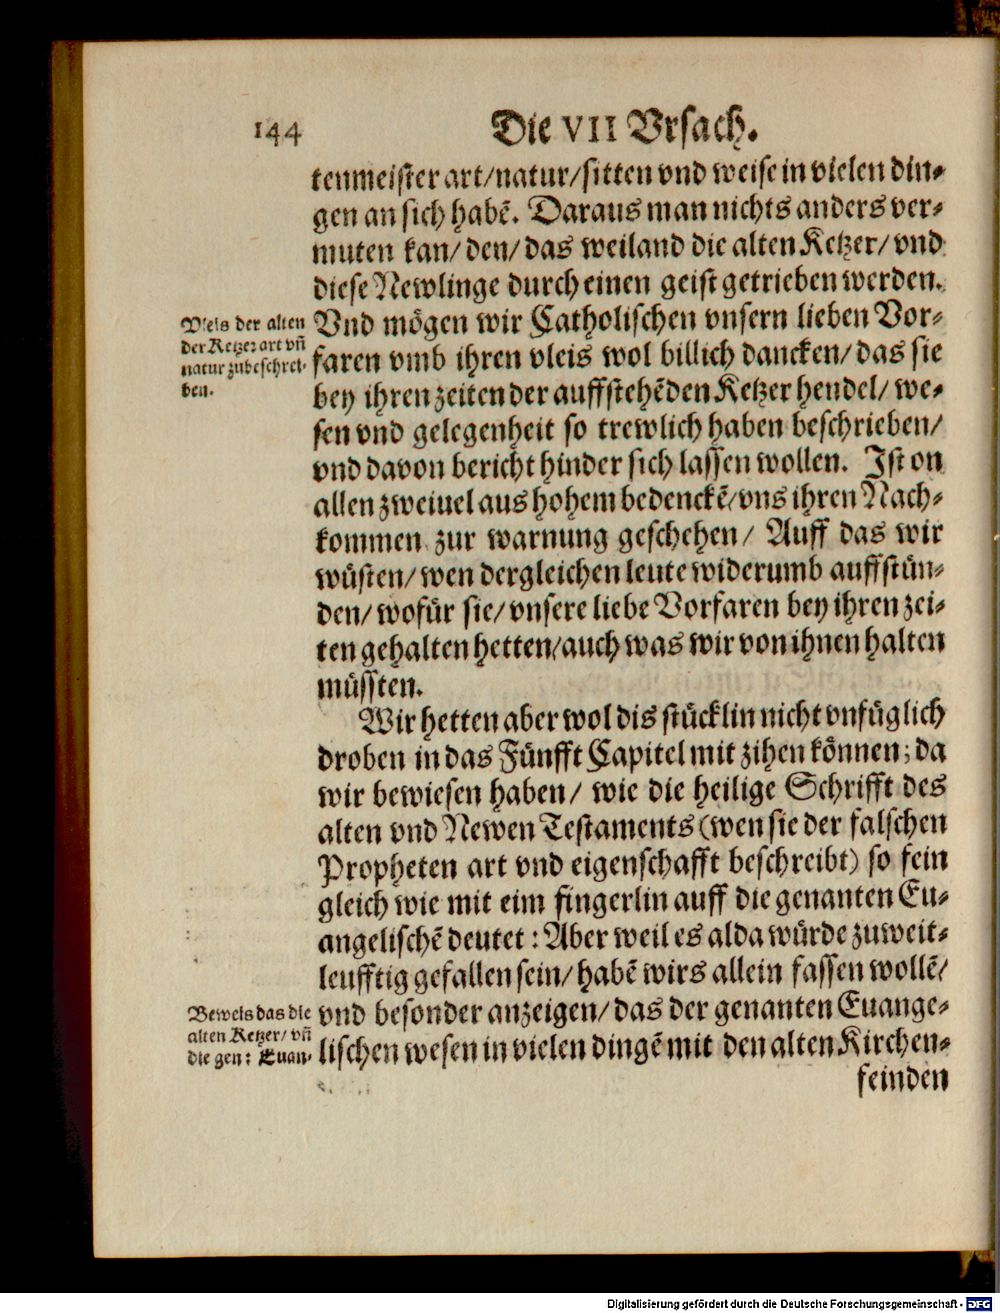 144
Die VII Vrsach.
tenmeister art/natur/sitten vnd weise in vielen din⸗
gen an sich habē. Daraus man nichts anders ver⸗
muten kan/ den/ das weiland die alten Ketzer/ vnd
diese Newlinge durch einen geist getrieben werden.
Vnd mögen wir Catholischen vnsern lieben Vor⸗
faren vmb ihren vleis wol billich dancken/ das sie
bey ihren zeiten der auffstehēden Ketzer hendel/ we⸗
sen vnd gelegenheit so trewlich haben beschrieben/
vnd davon bericht hinder sich lassen wollen. Ist on
allen zweiuel aus hohem bedenckē/ vns ihren Nach⸗
kommen zur warnung geschehen/ Auff das wir
wüsten/ wen dergleichen leute widerumb auffstün⸗
den/ wofür sie/ vnsere liebe Vorfaren bey ihren zei⸗
ten gehalten hetten/ auch was wir von ihnen halten
müssten.
Vleis der alten
der Ketzer art vñ
natur zubeschrei⸗
ben.
Wir hetten aber wol dis stücklin nicht vnfüglich
droben in das Fünfft Capitel mit zihen können; da
wir bewiesen haben/ wie die heilige Schrifft des
alten vnd Newen Testaments (wen sie der falschen
Propheten art vnd eigenschafft beschreibt) so fein
gleich wie mit eim fingerlin auff die genanten Eu⸗
angelischē deutet: Aber weil es alda würde zuweit⸗
leufftig gefallen sein/ habē wirs allein fassen wollē/
vnd besonder anzeigen/ das der genanten Euange⸗
lischen wesen in vielen dingē mit den alten Kirchen⸗
feinden
Beweis das die
alten Ketzer/ vñ
die gen: Euan⸗
Digitalisierung gefördert durch die Deutsche Forschungsgemeinschaft - DFG